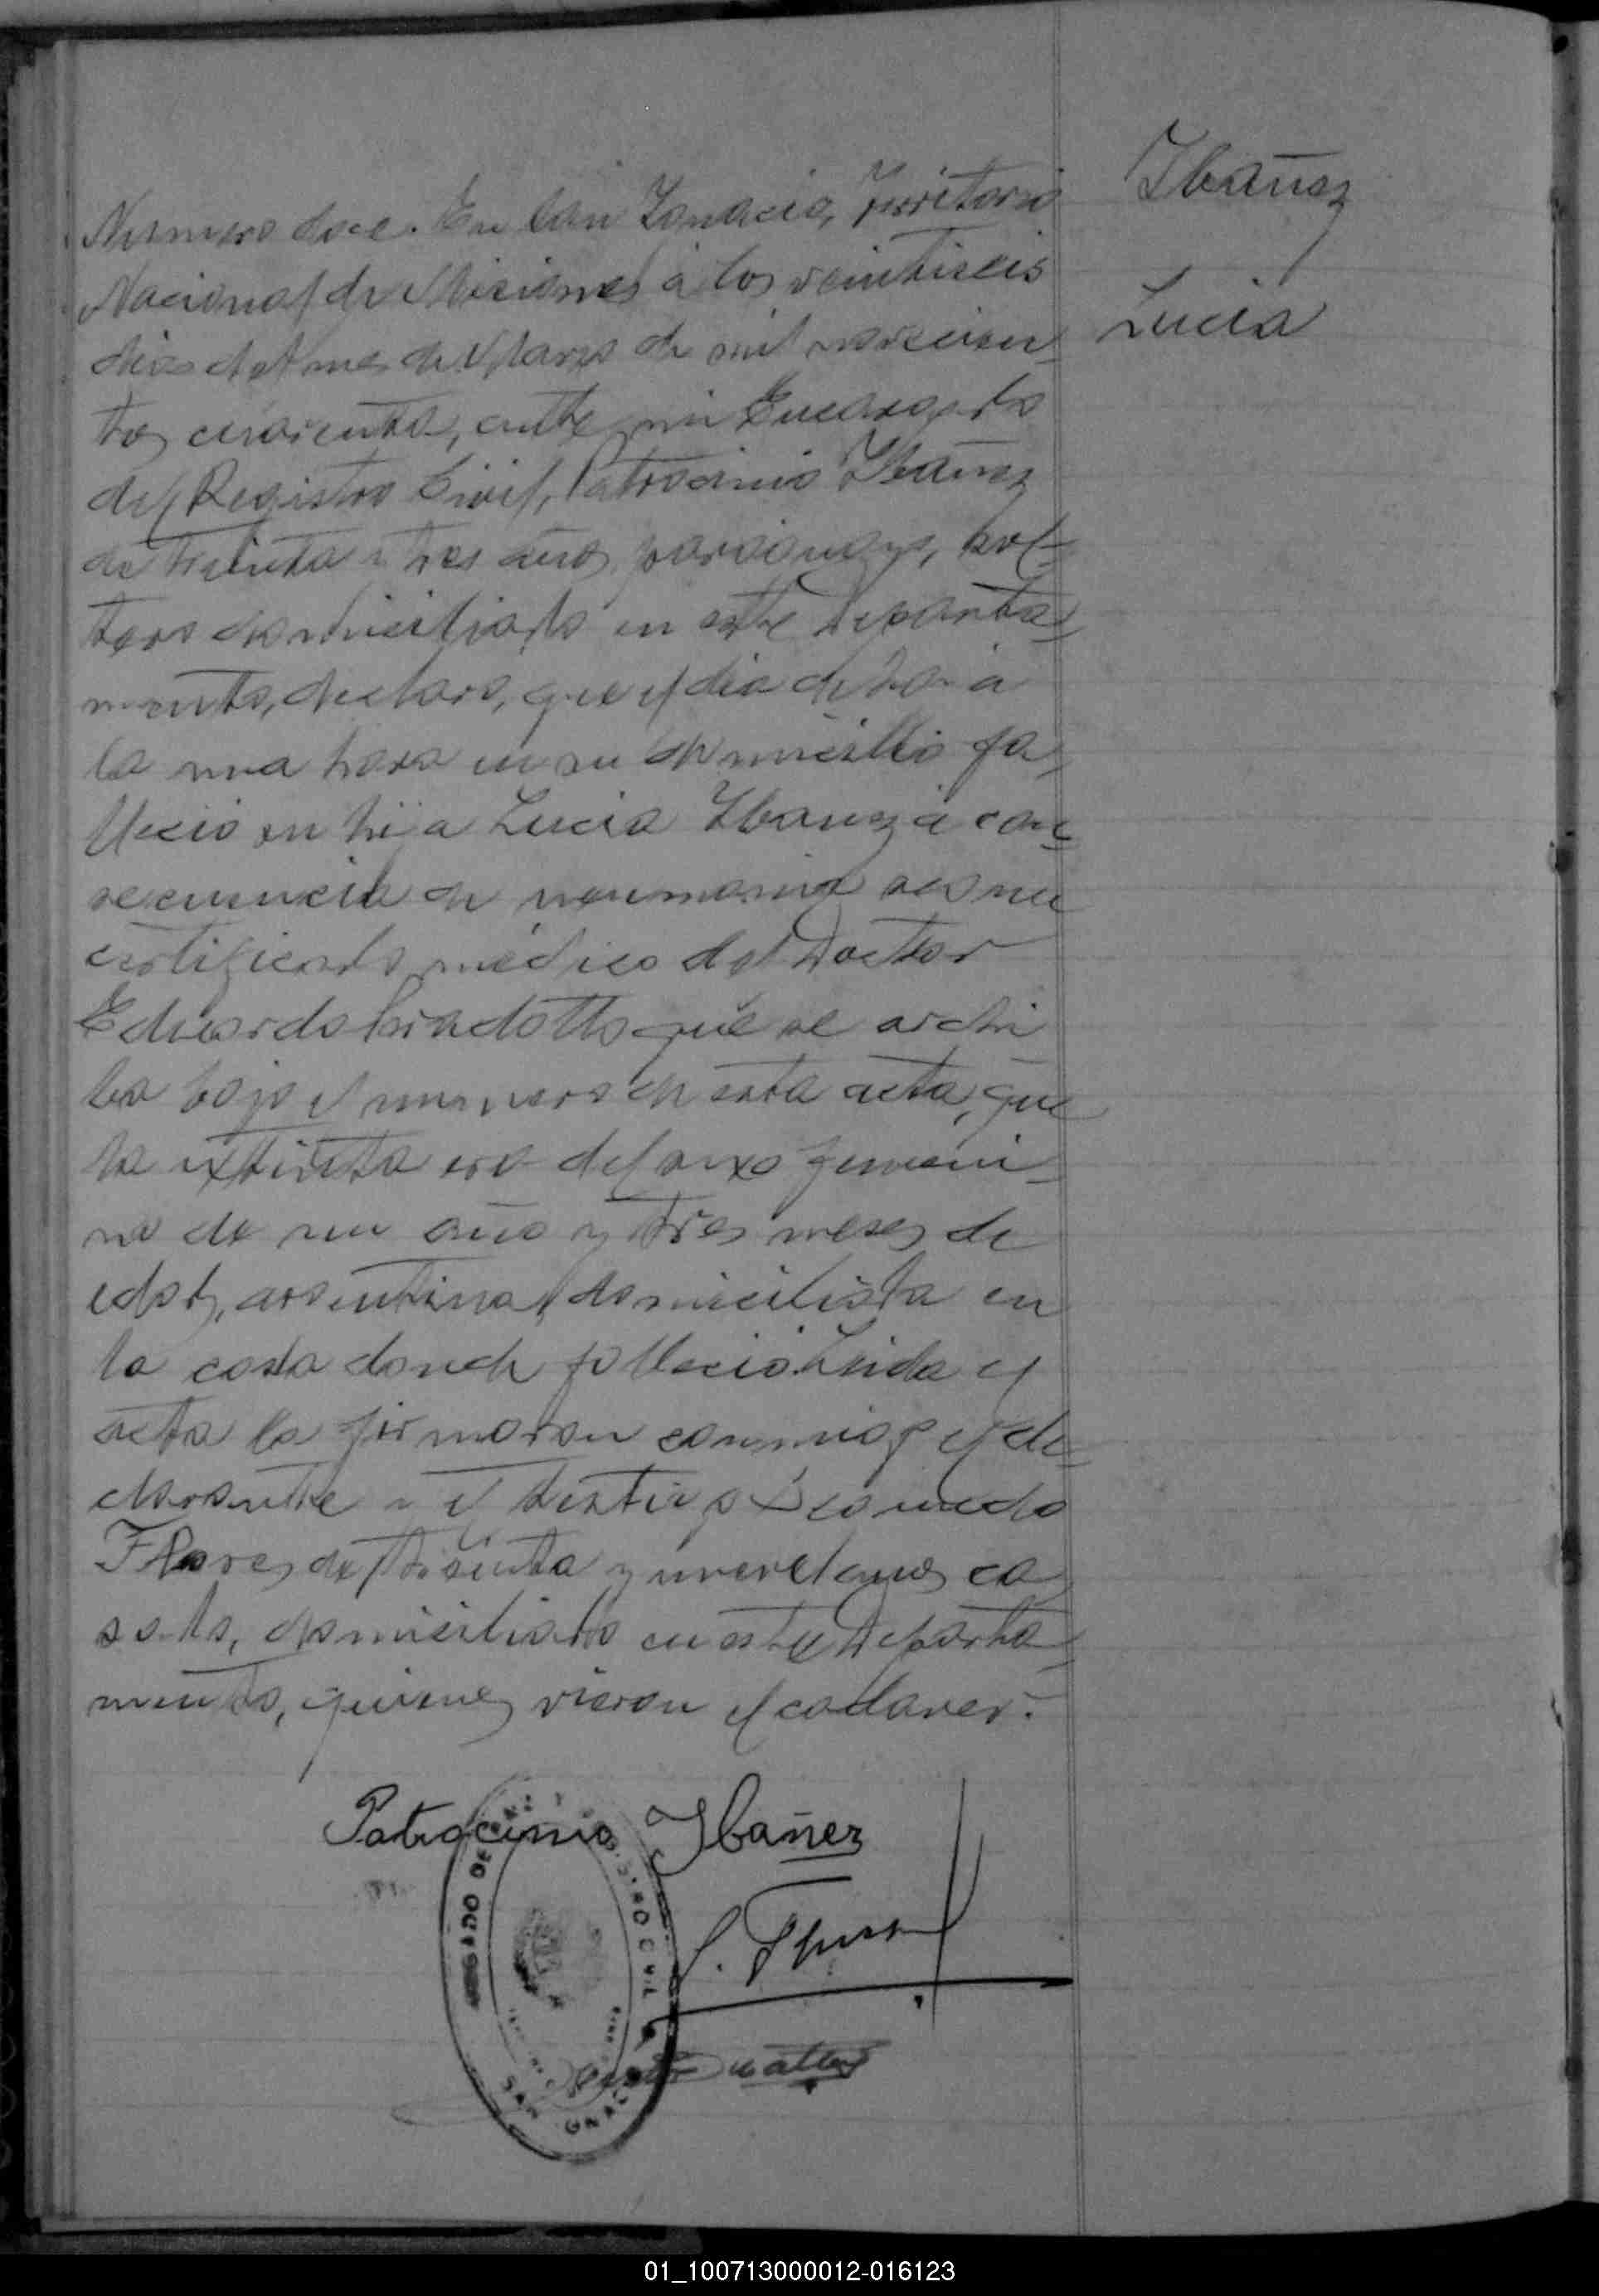 Numero doce. En San Ignacio, Territorio
Nacional de Misiones a los veintiseis
dias del mes de Marzo de mil novecien-
tos cuarenta, ante mi Encargado
del Registro Civil, Patrocinio Ibañez
de treinta y tres años, paraguayo, sol-
tero domiciliado en este Departa-
mento, declaro, que el dia de hoy a
la una hora en su domicilio fa-
llecio su hija Lucia Ibañez a con-
secuencia de neumonia segun
certificado médico del Doctor
Eduardo que se archi
ba bajo el numero de esta acta, que
la extinta era del sexo femeni-
no de un año y tres meses de
edad, argentina, domiciliada en
la casa donde fallecio. Leida el
acta la firmaron conmigo el de-
clarante y el testigo
Flores de treinta y nueve años ca-
sado, domiciliado en este Departa-
mento, quienes vieron el cadaver.
Ibañez
Lucia
Patrocinio Ibañez
01_100713000012-016123